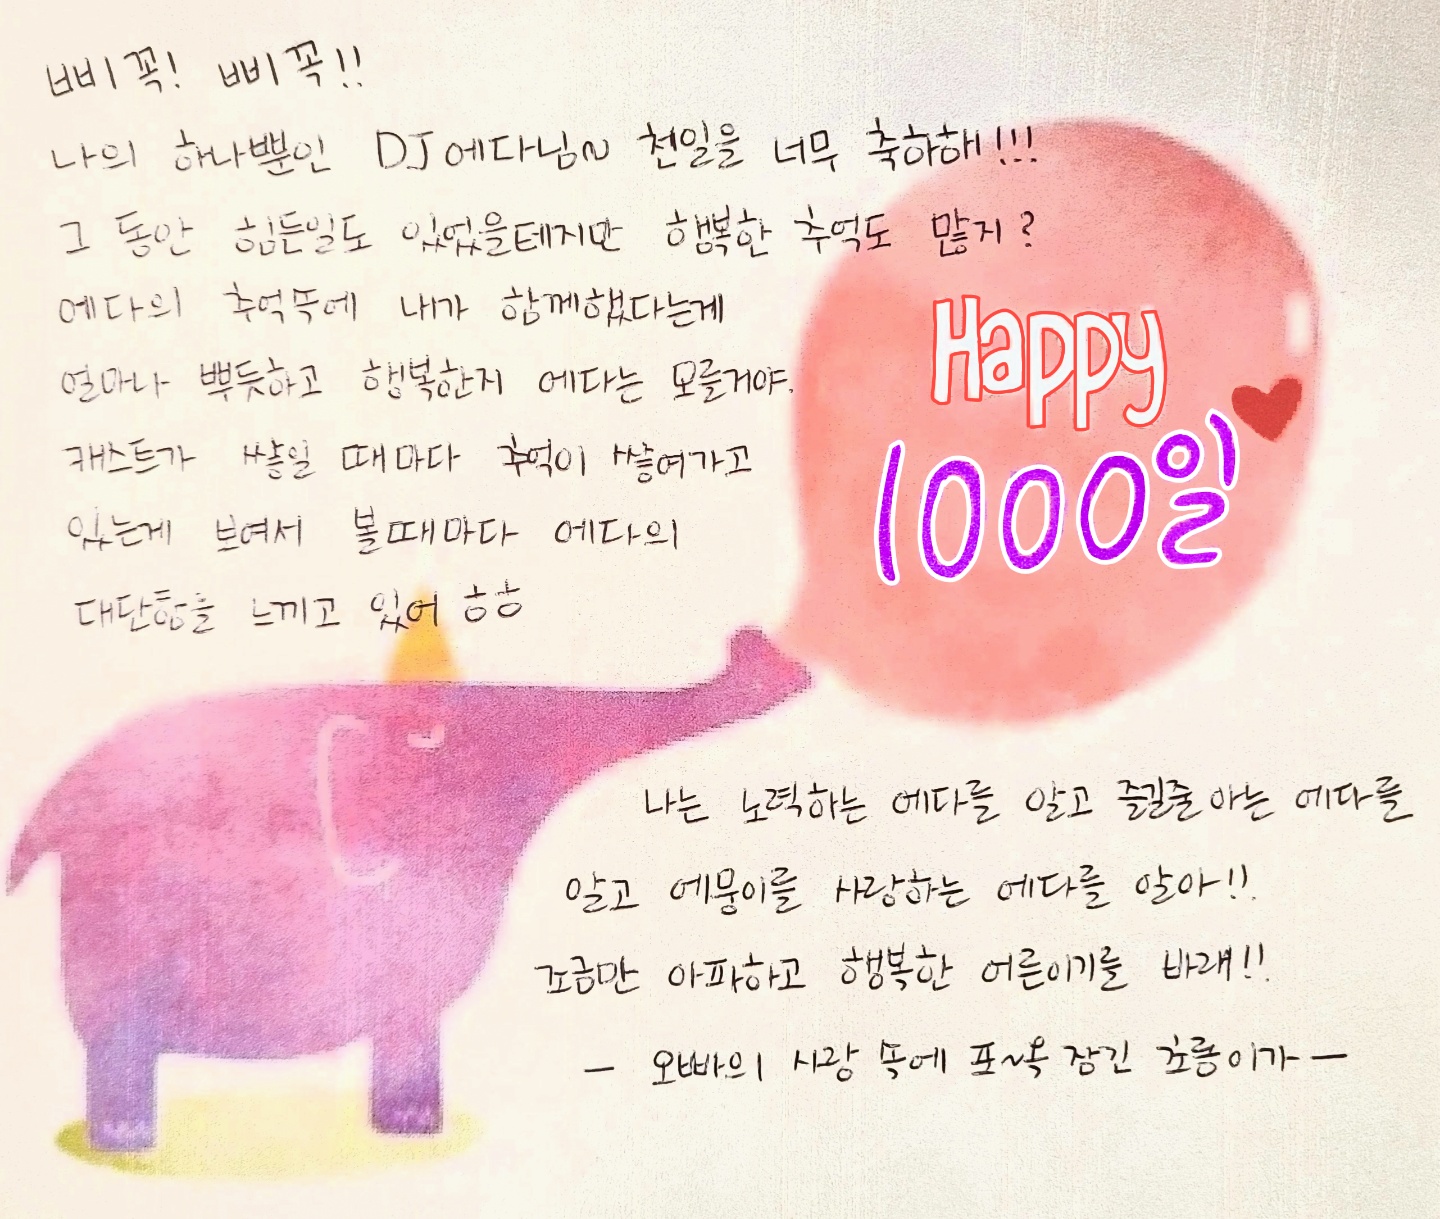 삐꼭! 삐꼭!!
나의 하나뿐인 DJ에다님~ 천일을 너무 축하해!!!
그 동안 힘든일도 있었을테지만 행복한 추억도 많지?
에다의 추억뚝에 내가 함께했다는게
얼마나 뿌듯하고 행복한지 에다는 모를거야.
캐스트가 쌓일 때마다 추억이 쌓여가고
있는게 보여서 볼때마다 에다의
대단함을 느끼고 있어 ㅎㅎ
Happy
1000일
나는 노력하는 에다를 알고 즐길줄아는 에다를
알고 에뭉이를 사랑하는 에다를 알아!!
조금만 아파하고 행복한 어른이기를 바래!!
- 오빠의 사랑 쏙에 포~옥 잠긴 초롱이가 -